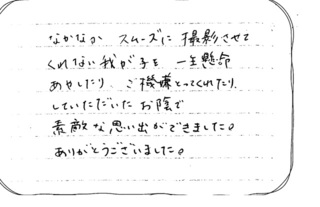 なかなか スムーズに 撮影させて
くれない我が子を 一生懸命
あやしたり、ご機嫌とってくれたり、
していただいた お陰で
素敵な思い出ができました。
ありがとうございました。